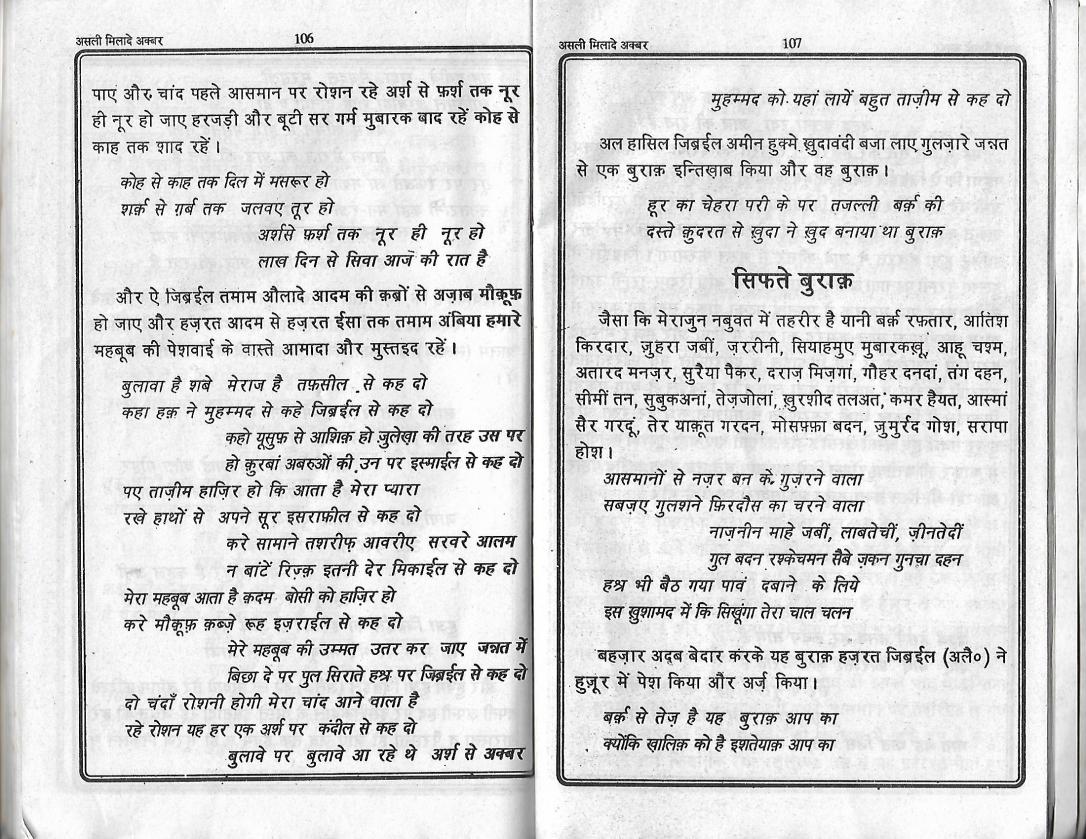 असली मिलादे अक्बर 106
पाए और चांद पहले आसमान पर रोशन रहे अर्श से फ़र्श तक नूर
ही नूर हो जाए हरजड़ी और बूटी सर गर्म मुबारक बाद रहें कोह से
काह तक शाद रहें।
कोह से काह तक दिल में मसरूर हो
शर्क़ से ग़र्ब तक जलवए तूर हो
अर्शसे फ़र्श तक नूर ही नूर हो
लाख दिन से सिवा आज की रात है
और ऐ जिब्रईल तमाम औलादे आदम की क़ब्रों से अज़ाब मौक़ूफ़
हो जाए और हज़रत आदम से हज़रत ईसा तक तमाम अंबिया हमारे
महबूब की पेशवाई के वास्ते आमादा और मुस्तइद रहें।
बुलावा है शबे मेराज है तफ़सील से कह दो
कहा हक़ ने मुहम्मद से कहे जिब्रईल से कह दो
कहो यूसुफ़ से आशिक़ हो ज़ुलेख़ा की तरह उस पर
हो क़ुरबां अबरुओं की उन पर इस्माईल से कह दो
पए ताज़ीम हाज़िर हो कि आता है मेरा प्यारा
रखे हाथों से अपने सूर इसराफ़ील से कह दो
करे सामाने तशरीफ़ आवरीए सरवरे आलम
न बांटें रिज़्क़ इतनी देर मिकाईल से कह दो
मेरा महबूब आता है क़दम बोसी को हाज़िर हो
करे मौक़ूफ़ क़ब्ज़े रूह इज़राईल से कह दो
मेरे महबूब की उम्मत उतर कर जाए जन्नत में
बिछा दे पर पुल सिराते हश्र पर जिब्रईल से कह दो
दो चंदाँ रोशनी होगी मेरा चांद आने वाला है
रहे रोशन यह हर एक अर्श पर कंदील से कह दो
बुलावे पर बुलावे आ रहे थे अर्श से अक्बर
असली मिलादे अक्बर 107
मुहम्मद को यहां लायें बहुत ताज़ीम से कह दो
अल हासिल जिब्रईल अमीन हुक्मे ख़ुदावंदी बजा लाए गुलज़ारे जन्नत
से एक बुराक़ इन्तिख़ाब किया और वह बुराक़।
हूर का चेहरा परी के पर तजल्ली बर्क़ की
दस्ते क़ुदरत से ख़ुदा ने ख़ुद बनाया था बुराक़
सिफते बुराक़
जैसा कि मेराजुन नबुवत में तहरीर है यानी बर्क़ रफ़्तार, आतिश
किरदार, ज़ुहरा जबीं, ज़ररीनी, सियाहमुए मुबारकख़ू, आहू चश्म,
अतारद मनज़र, सुरैया पैकर, दराज़ मिज़गां, गौहर दनदां, तंग दहन,
सीमीं तन, सुबुकअनां, तेज़जोलां, ख़ुरशीद तलअत, कमर हैयत, आस्मां
सैर गरदूं, तेर याक़ूत गरदन, मोसफ़्फ़ा बदन, ज़ुमुर्रद गोश, सरापा
होश।
आसमानों से नज़र बन के गुज़रने वाला
सबज़ए गुलशने फ़िरदौस का चरने वाला
नाज़नीन माहे जबीं, लाबतेचीं, ज़ीनतेदीं
गुल बदन रश्केचमन सैबे ज़कन गुनचा दहन
हश्र भी बैठ गया पावं दबाने के लिये
इस ख़ुशामद में कि सिखूंगा तेरा चाल चलन
बहज़ार अद्ब बेदार करके यह बुराक़ हज़रत जिब्रईल (अलै०) ने
हुज़ूर में पेश किया और अर्ज़ किया।
बर्क़ से तेज़ है यह बुराक़ आप का
क्योंकि खालिक़ को है इशतेयाक़ आप का